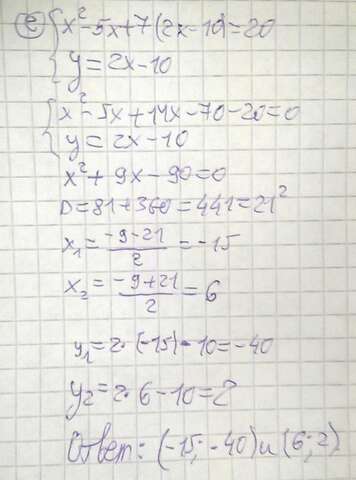 е) { x² - 5x + 7(2x - 10) = 20
y = 2x - 10
{ x² - 5x + 14x - 70 - 20 = 0
y = 2x - 10
x² + 9x - 90 = 0
D = 81 + 360 = 441 = 21²
x₁ = (-9 - 21)/2 = -15
x₂ = (-9 + 21)/2 = 6
y₁ = 2 · (-15) - 10 = -40
y₂ = 2 · 6 - 10 = 2
Ответ: (-15; -40) и (6; 2)